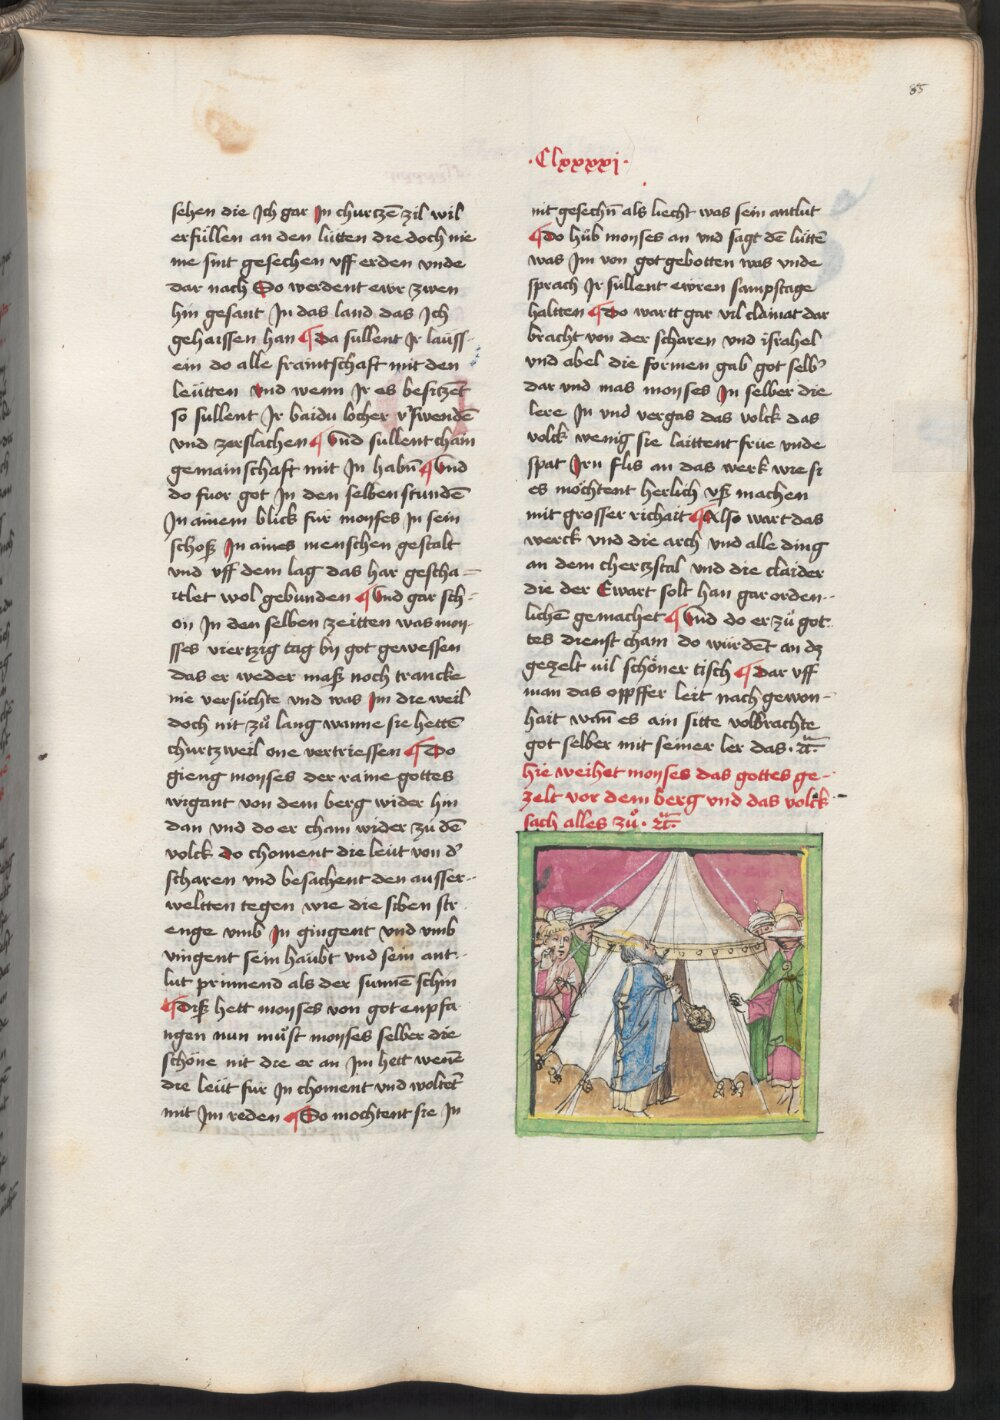 85
·Clxxxxi·
sehen die Ich gar In churtzē zil wil
erfüllen an den lütten die doch nie
me sint gesechen vff erden vnde
dar nach So werdent ewr zwen
hin gesant In das land das Ich
gehaissen han ¶ Da sullent Ir laüss-
ein do alle fraintschaft mit den
leütten Vnd wenn Ir es besitzēt
so sullent Ir baidu locher vʼswendē
vnd zerslachen ¶ Vnd sullent chain
gemainschaft mit In habn̄ ¶ Vnd
do fuor got In den selben stundē
In ainem blick fur moyses In sein
schoß In aines menschen gestalt
vnd vff dem lag das har gescha-
itlet wol gebunden ¶ Vnd gar sch-
on In den selben zeitten was moy-
sses viertzig tag by got gewessen
das er weder maß noch trancke
nie versüchte vnd was Im die weil
doch nit zů lang wanne sie hettē
churtzweil one vertriessen ¶ Do
gieng moyses der raine gottes
wigant von dem berg wider hin
dan vnd do er cham wider zu dē
volck do choment die leüt von dʼ
scharen vnd besachent den ausser-
weltten tegen wie die siben str-
enge vmb In gingent vnd vmb
vingent sein haubt vnd sein ant-
lut prinnend als der sunnē schin
¶ Diß hett moyses von got enpfa-
ngen nun můst moyses selber die
schöne nit die er an Im hett wenē
die leüt fur In choment vnd woltēt
mit Im reden ¶ So mochtent sie In
nit gesechn̄ als liecht was sein antlut
¶ Do hůb moyses an vnd sagt dē lüttē
was Im von got gebotten was vnde
sprach Ir sullent ewren sampstage
haltten ¶ Do wartt gar vil clainat dar
bracht von der scharen vnd israhel
vnd abel die formen gab got selbʼ
dar vnd mas moyses In selber die
lere In vnd vergas das volck das
volck wenig sie laittent frue vnde
spat Irn flis an das werk wie si
es möchtent herlich vß machen
mit grosser richait ¶ Also wart das
werck vnd die arch vnd alle ding
an dem chertzstal vnd die claider
die der Ewart solt han gar orden-
lichē gemachet ¶ Vnd do er zů got-
tes dienst cham do wurdēt an dz
gezelt uil schöner tisch ¶ Dar vff
man das oppffer leit nach gewon-
hait wan̄ es ain sitte volbrachte
got selber mit seiner ler das·
hie weihet moyses das gottes ge-
zelt vor dem berg vnd das volck
sach alles zů·